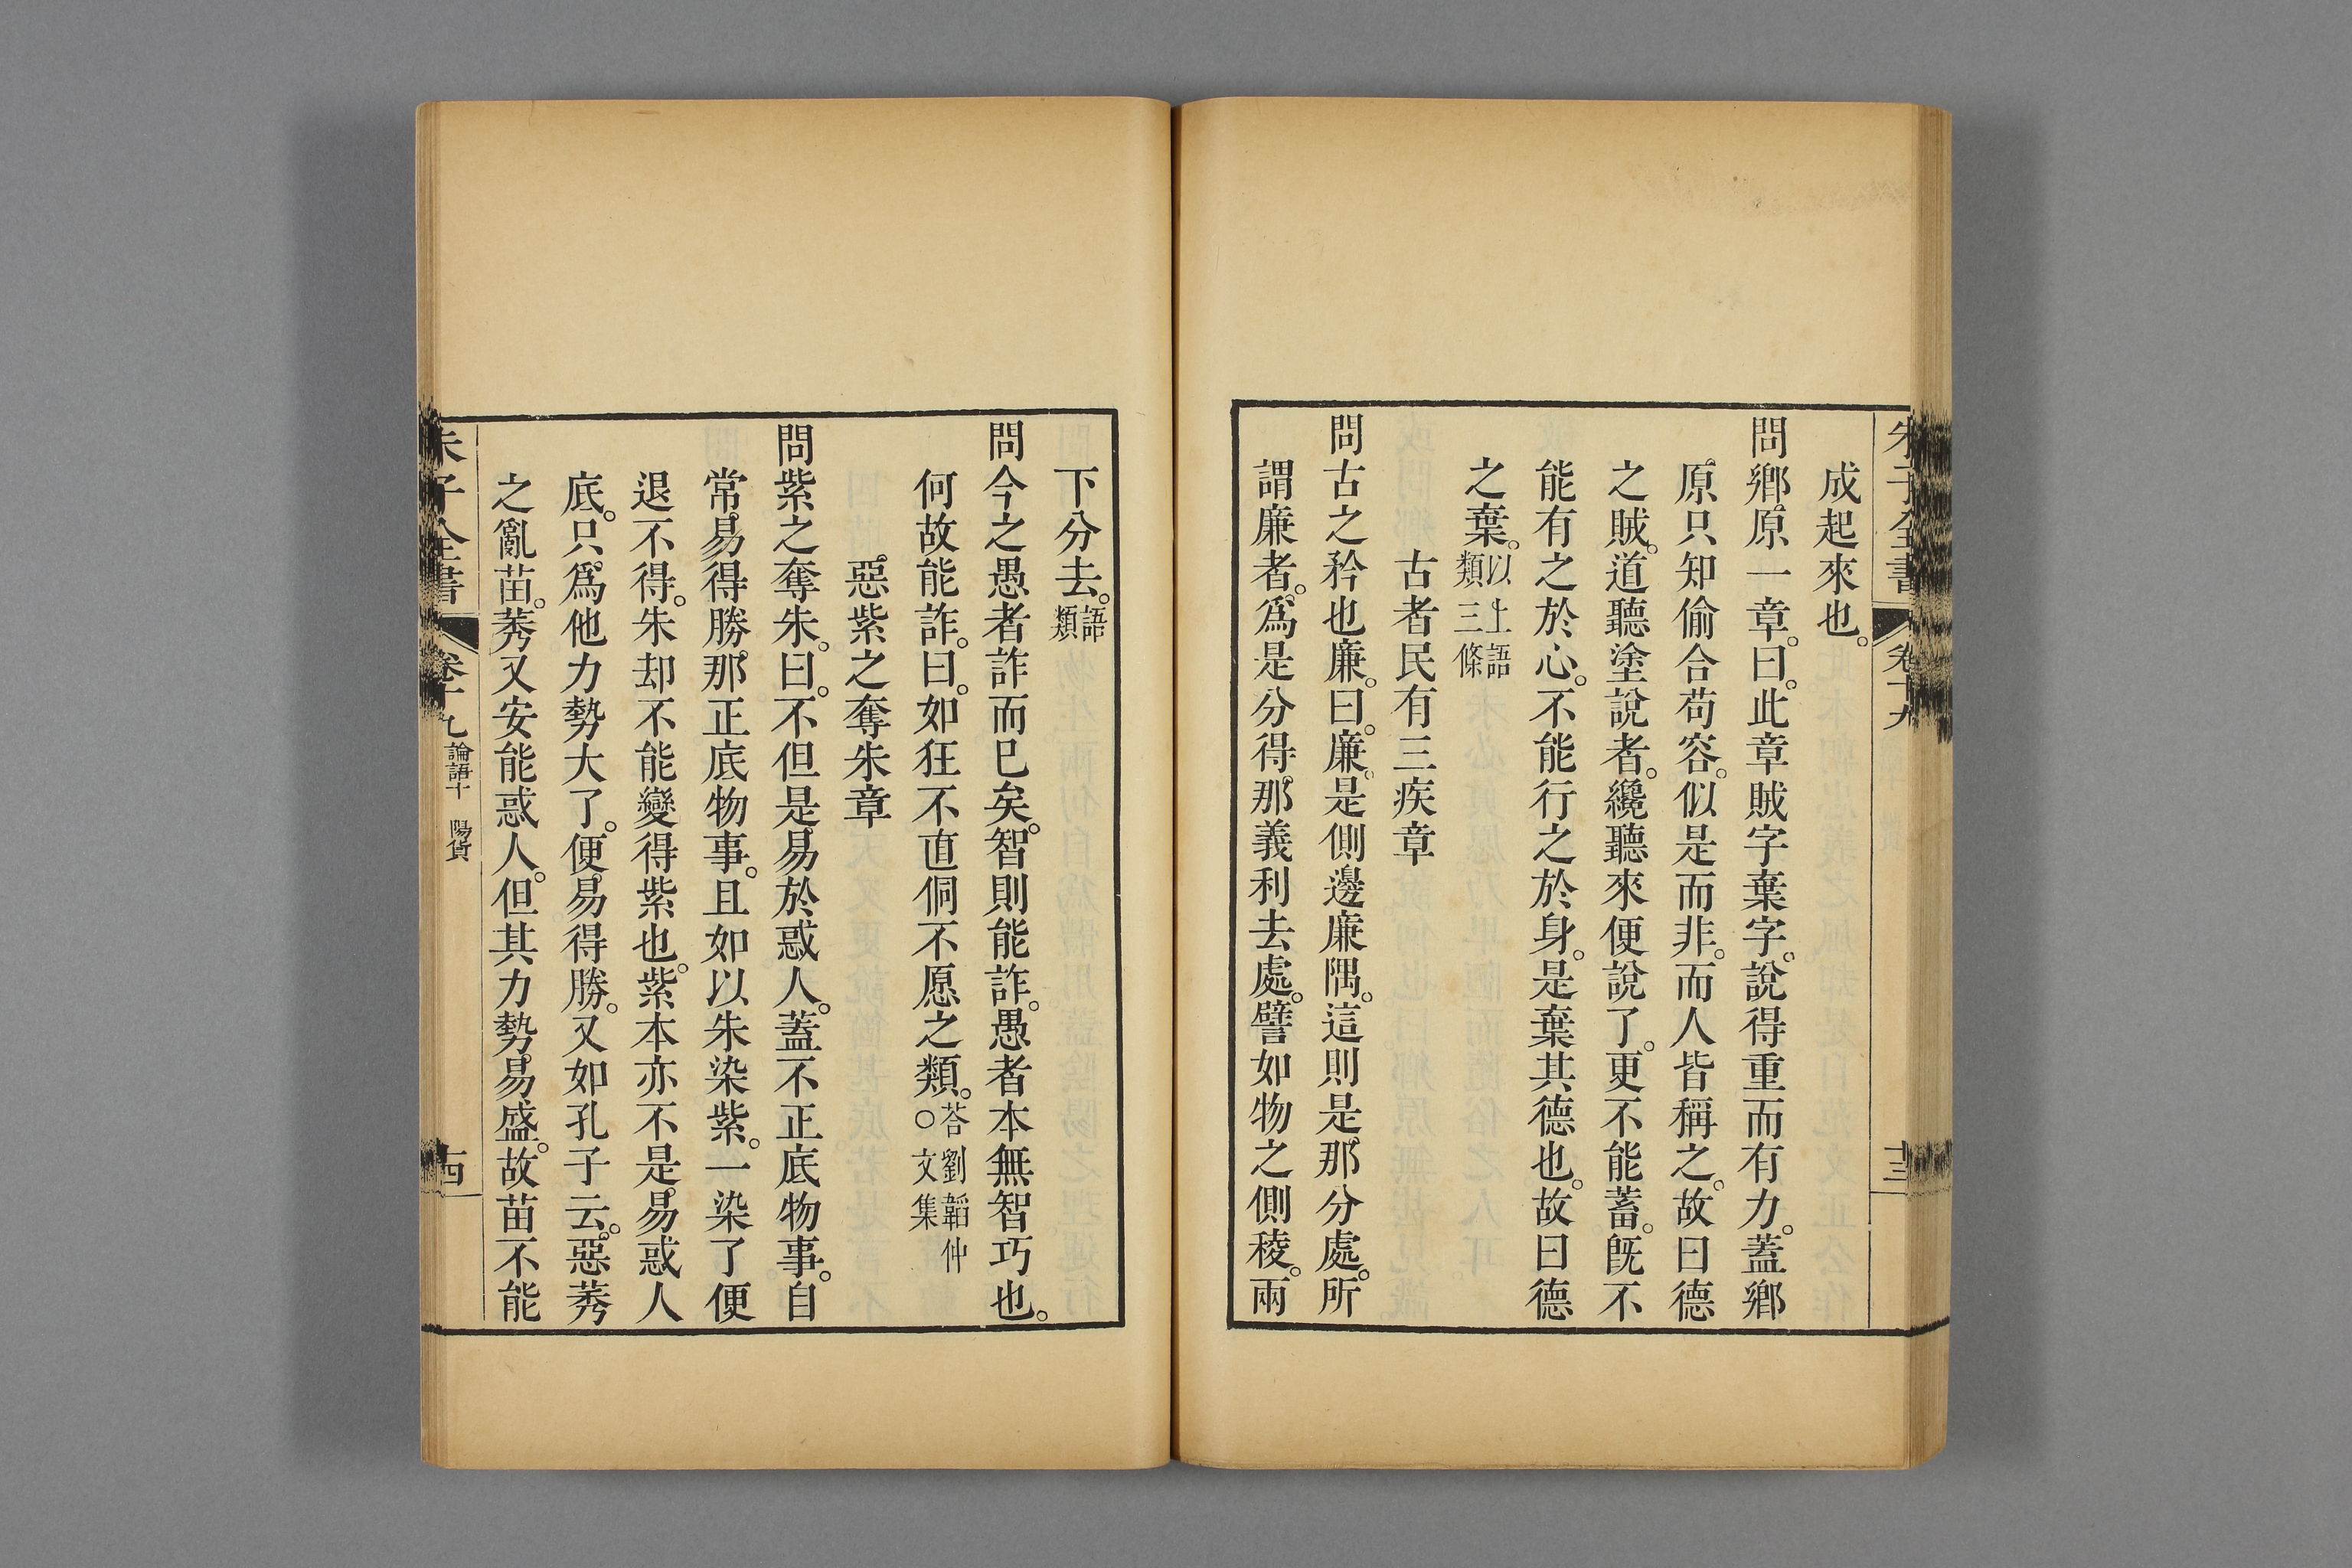 朱子全書 卷十九 十三
成起來也。
問鄉原一章。曰。此章賊字棄字。說得重而有力。蓋鄉
原只知偷合苟容。似是而非。而人皆稱之。故曰德
之賊。道聽塗說者。纔聽來便說了。更不能蓄。旣不
能有之於心。不能行之於身。是棄其德也。故曰德
之棄。以上語類三條
古者民有三疾章
問古之矜也廉。曰。廉。是側邊廉隅。這則是那分處。所
謂廉者。爲是分得那義利去處。譬如物之側稜。兩
下分去。語類
問今之愚者詐而已矣。智則能詐。愚者本無智巧也。
何故能詐。曰。如狂不直侗不愿之類。荅劉韜仲○文集
惡紫之奪朱章
問紫之奪朱。曰。不但是易於惑人。蓋不正底物事。自
常易得勝那正底物事。且如以朱染紫。一染了便
退不得。朱却不能變得紫也。紫本亦不是易惑人
底。只爲他力勢大了。便易得勝。又如孔子云。惡莠
之亂苗。莠又安能惑人。但其力勢易盛。故苗不能
朱子全書 卷十九 論語十 陽貨 十四